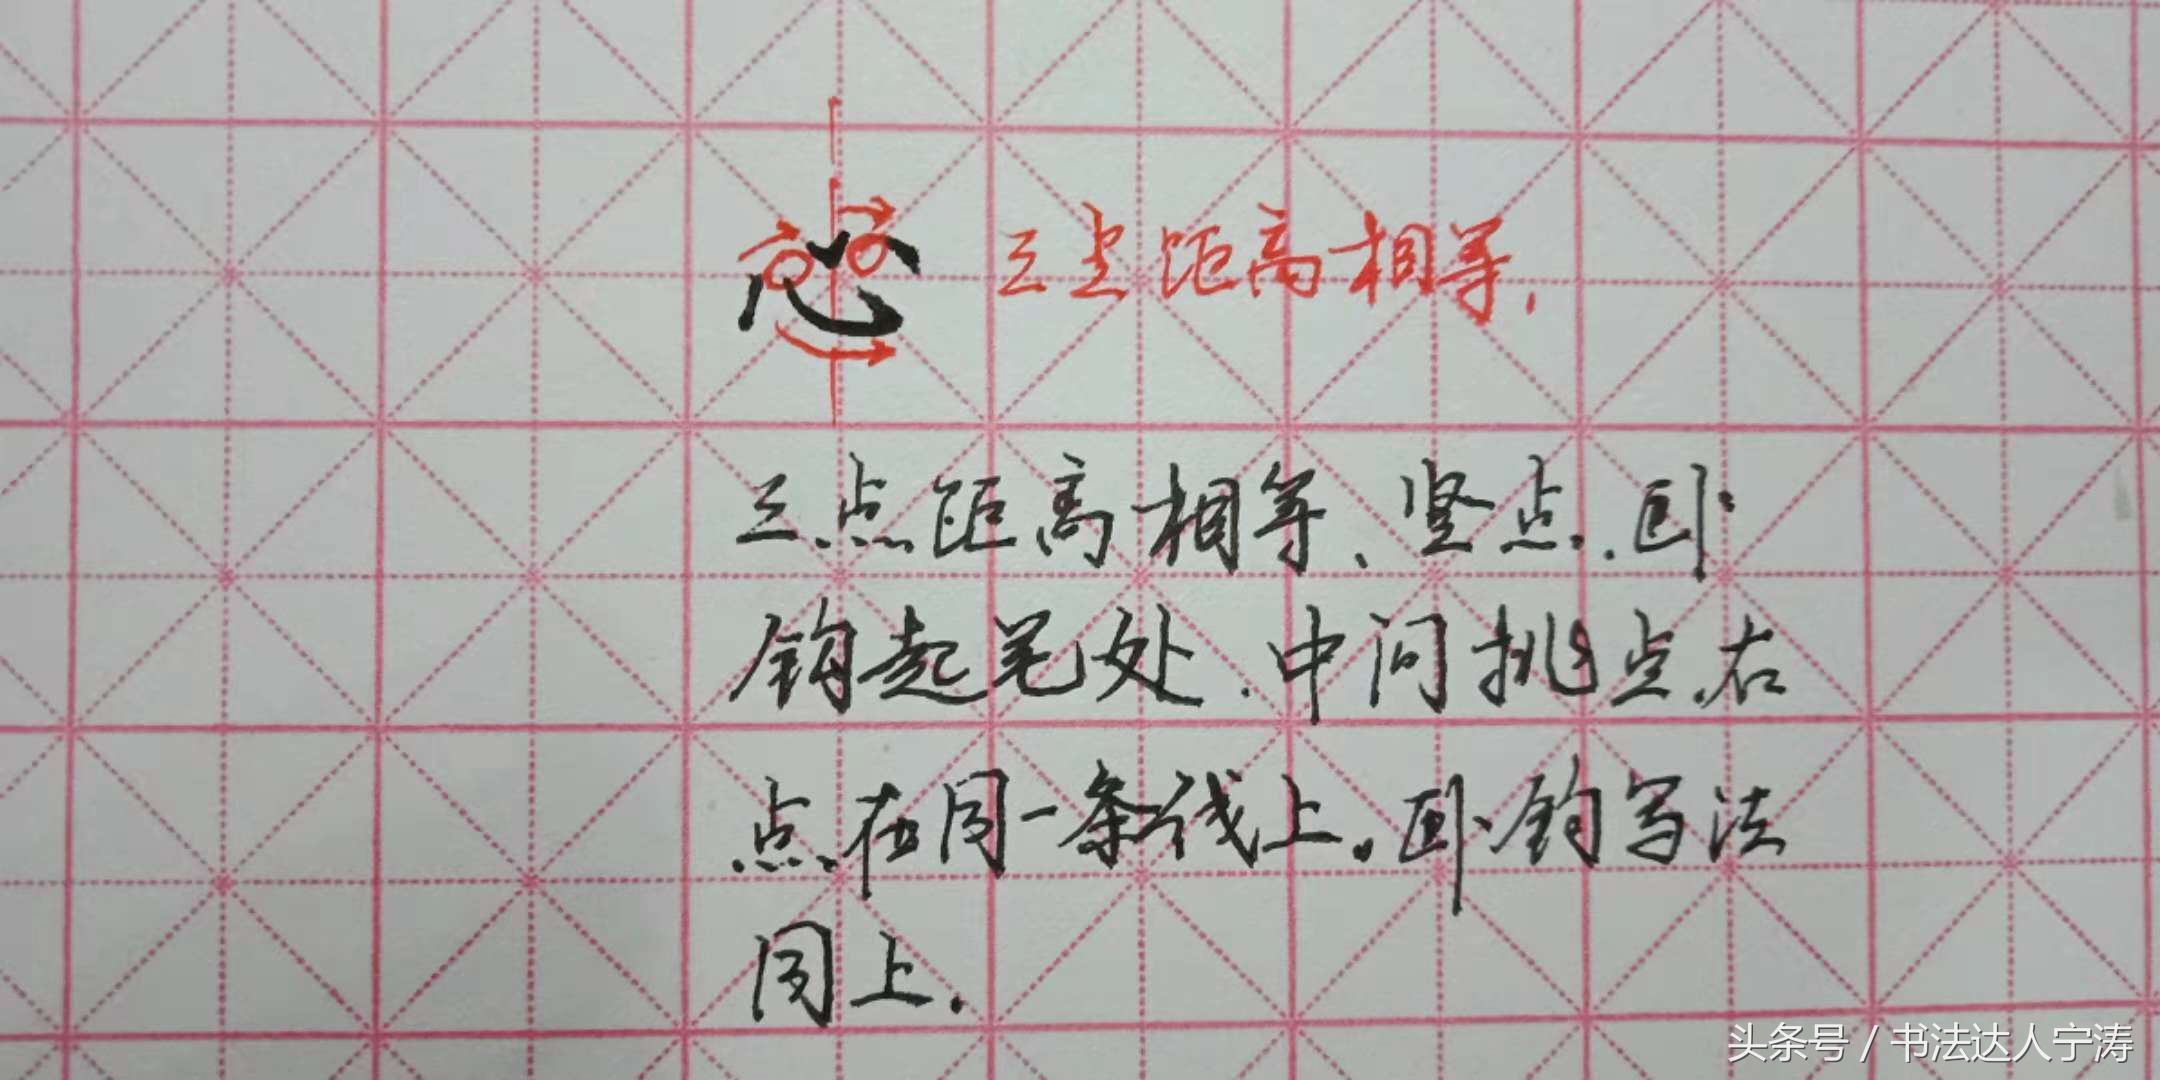 心 三点距离相等,
三点距离相等、竖点.卧
钩起笔处.中间挑点.右
点.在同一条线上.卧钩写法
同上.
头条号 / 书法达人宁涛